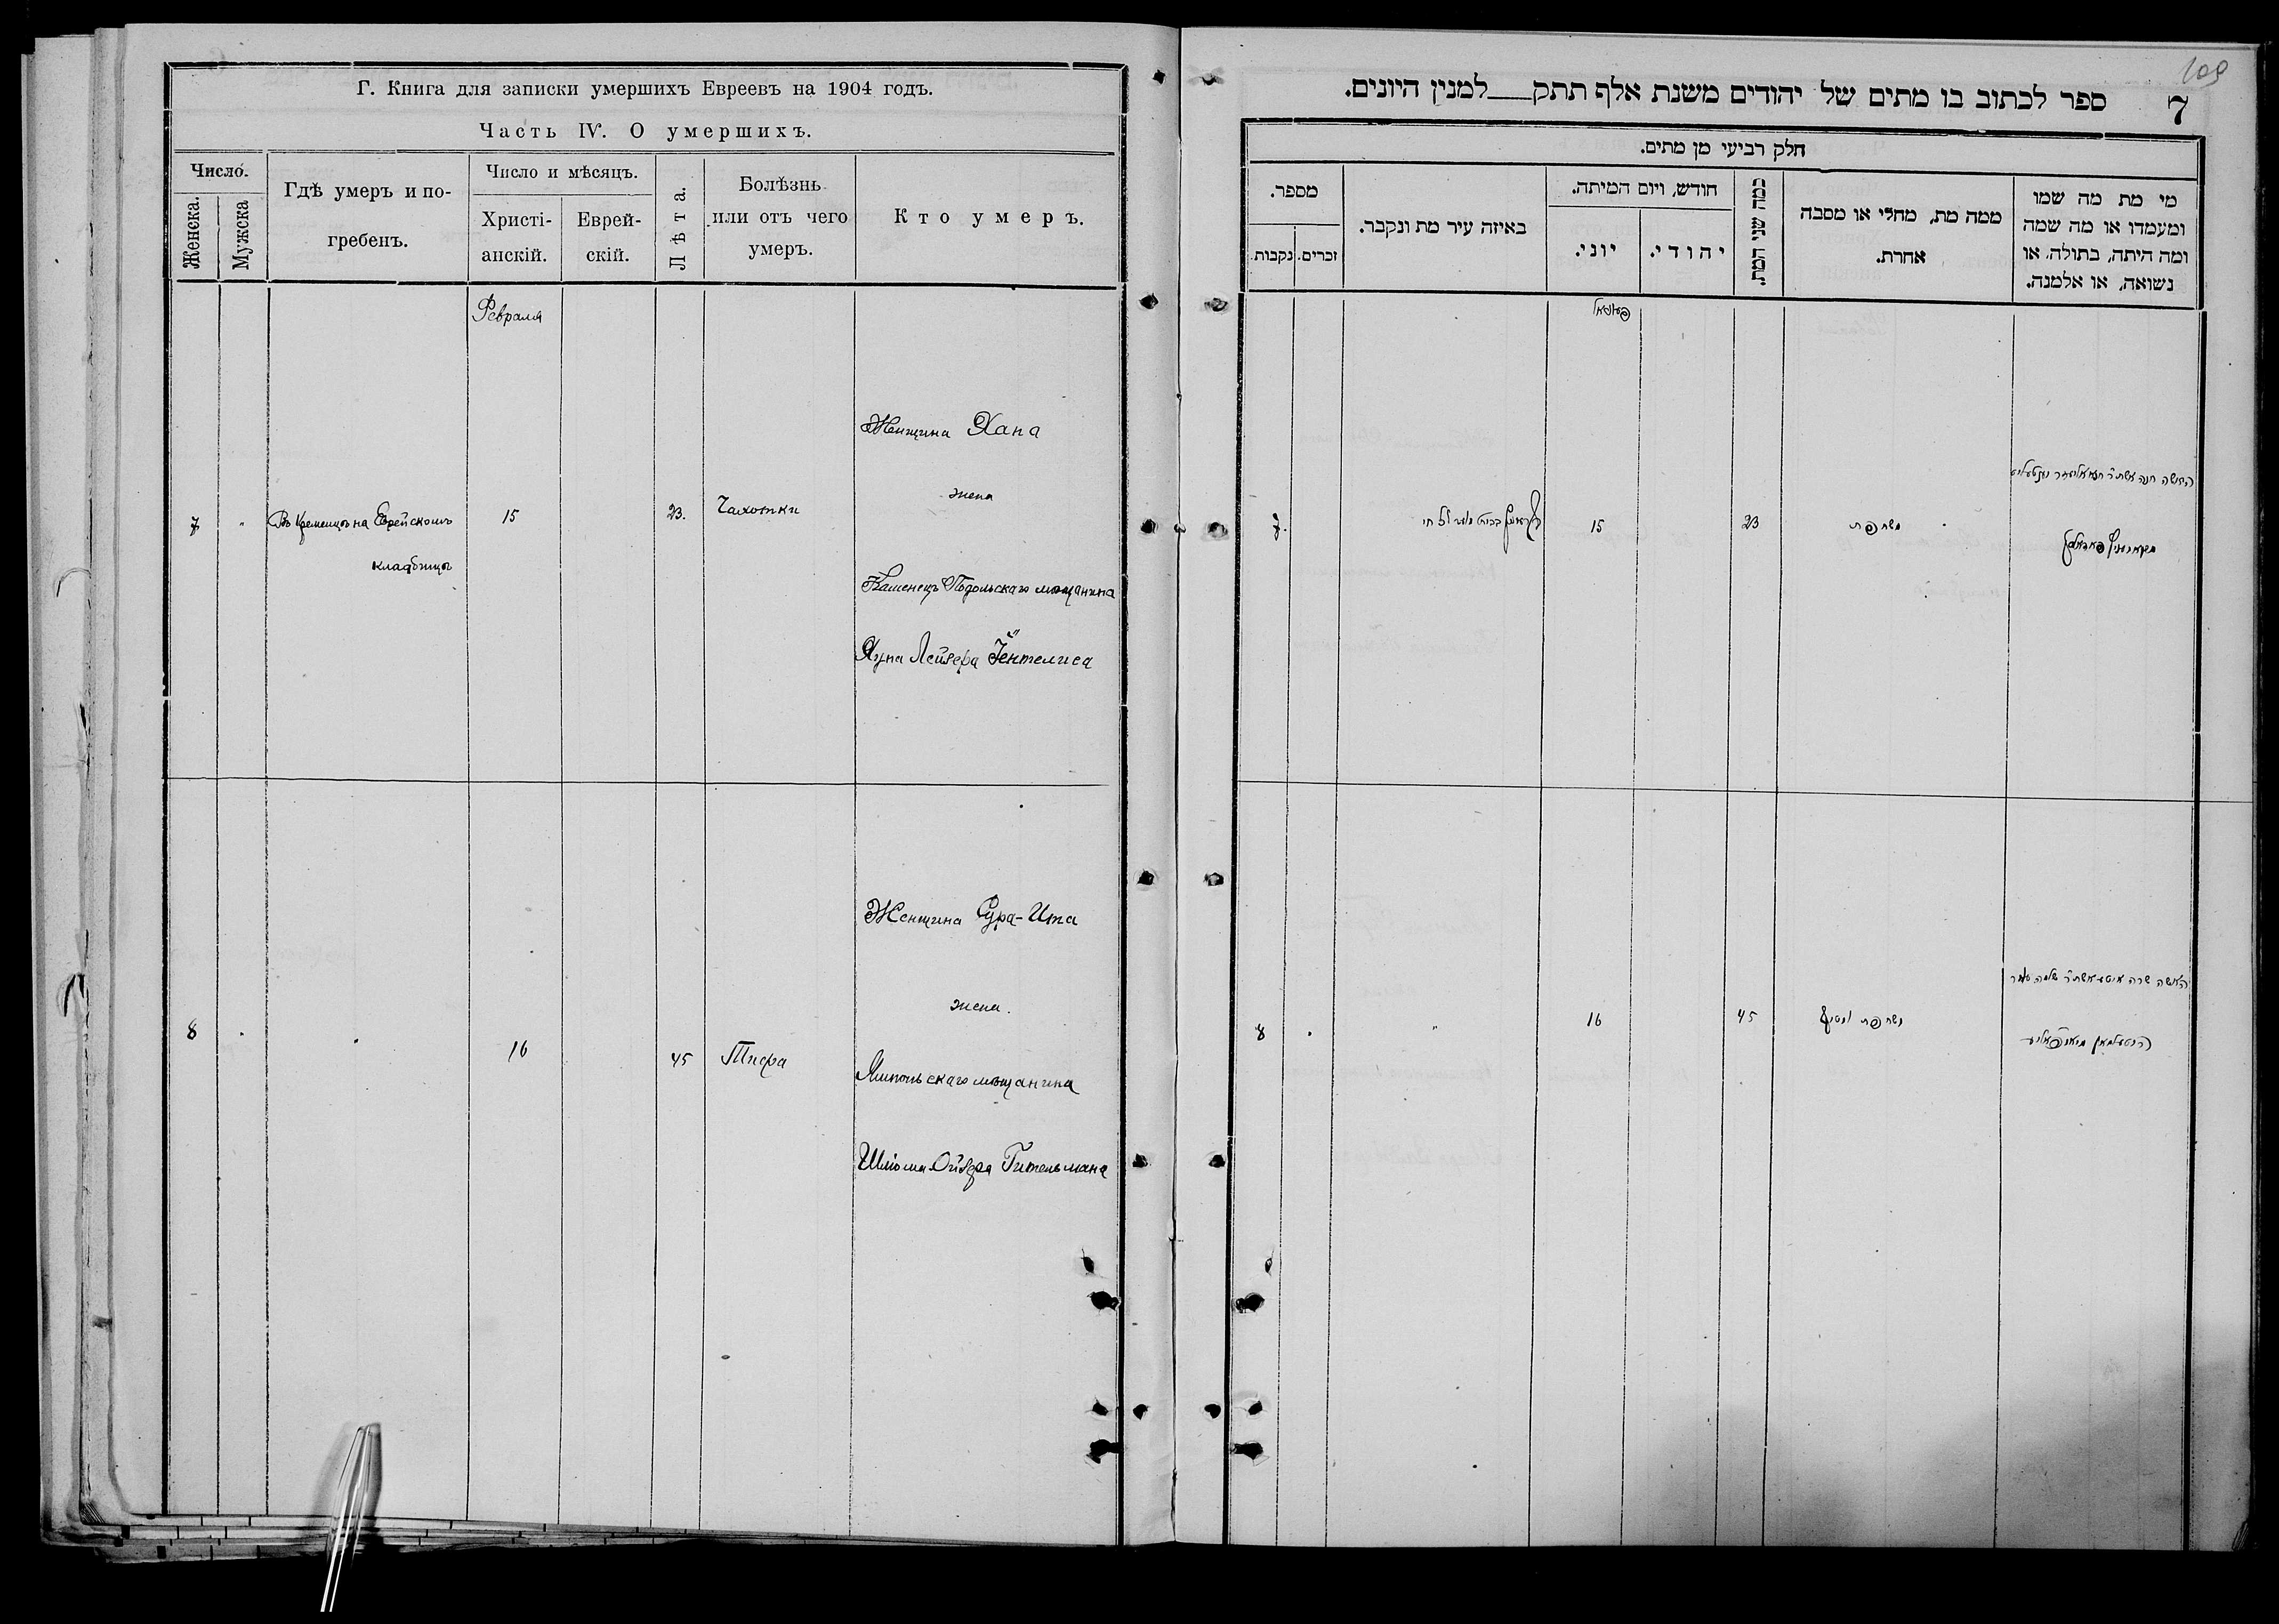 Г. Книга для записки умершихъ Евреевъ на 1904 годъ.
Часть IV. О умершихъ.
Число.
Женска.
Мужска
Гдѣ умеръ и по-
гребенъ.
Число и мѣсяцъ.
Христі-
анскій.
Еврей-
скій.
Лѣта.
Болѣзнь
или отъ чего
умеръ.
Кто умеръ.
Февраля
7
"
Въ Кременцѣ на Еврейскомъ
кладбищѣ
15
23.
Чахотки
Женщина Хана
жена
Каменецъ Подольскаго мѣщанина
Хуна Лейзера Гентелиса
8
16
45
Тифа
Женщина Сура-Ита
жена.
Ямпольскаго мѣщанина
Шлiома Ойзера Гительмана
109
7
ספר לכתוב בו מתים של יהודים משנת אלף תתק___למנין היונים.
חלק רביעי מן מתים.
מספר.
נקבות.
זכרים.
באיזה עיר מת ונקבר.
חודש, ויום המיתה.
יוני.
יהודי.
כמה שני המת.
ממה מת, מחלי או מסבה
אחרת.
מי מת מה שמו
ומעמדו או מה שמה
ומה היתה, בתולה, או
נשואה, או אלמנה.
7.
15
23
האשה חנה אשת ר'
8
"
16
45
האשה שרה איטא אשת ר' שלמה